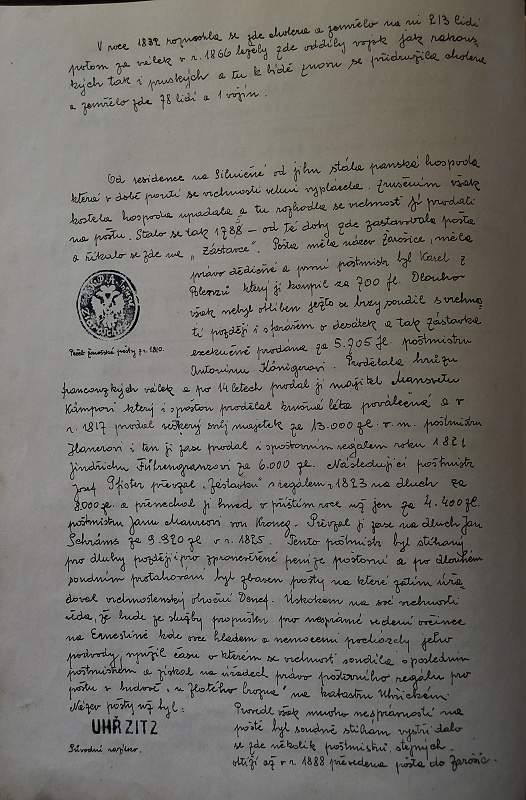 V roce 1832 rozmohla se zde cholera a zemřelo na ni 213 lidí
potom za válek v r. 1866 ležely zde oddíly vojsk jak rakous-
kých tak i pruských a tu k bídě znovu se přidružila cholera
a zemřelo zde 78 lidí a 1 vojín.
Od residence na Silničné od jihu stála panská hospoda
která v době poutí se vrchnosti velmi vyplácela. Zrušením však
kostela hospoda upadala a tu rozhodla se vrchnost jí prodati
na poštu. Stalo se tak 1788 - od té doby zde zastavovala pošta
a říkalo se zde na „Zástavce". Pošta měla název Žarošice, měla
právo dědičné a první poštmistr byl Karel z
který ji koupil za 700 fl. Dlouho
však nebyl oblíben ježto se brzy soudil s vrchno-
stí později i s farářem o desátek a tak Zástavka
exekučně prodána za 5.705 fl. poštmistru
Antonínu Königerovi. Prodělala hrůzu
Pečeť žarošické pošty z r. 1810.
francouzských válek a po 14 letech prodal ji majitel
který i s poštou prodělal krušná léta poválečná a v
r. 1817 prodal veškerý svůj majetek za 13.000 zl. v. m. poštmistru
i ten ji zase prodal i s poštovním regálem roku 1821
Jindřichu za 6.000 zl. Následující poštmistr
Josef Pfister převzal „Zástavku" s regálem r. 1823 na dluh za
8000 zl. a přenechal ji hned v příštím roce už jen za 4.400 zl.
poštmistru Janu von Převzal ji zase na dluh Jan
Schráns za 9.920 zl v r. 1825. Tento poštmistr byl stíhaný
pro dluhy později i pro zpronevěřené peníze poštovní a po dlouhém
soudním protahování byl zbaven pošty na které zatím úřa-
doval vrchnostenský Úskokem na své vrchnosti
věda, že bude ze služby propuštěn pro nesprávné vedení ovčince
na Ernestině kde ovce hladem a nemocemi pocházely jeho
podvody, využil času v kterém se vrchnost soudila s posledním
poštmistrem a získal na úřadech právo poštovního regálu pro
poštu v budově „u Zlatého hrozna" na katastru Uhřickém.
Název pošty už byl:
UHŘZITZ
Původní razítko.
Provedl však mnoho nesprávností na
poště byl soudně stíhán vystřídalo
se zde několik poštmistrů, stejných
obtíží až v r. 1888 převedena pošta do Žarošic.